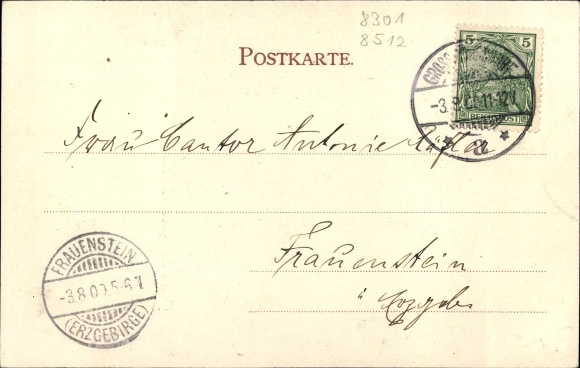 8301
8512
POSTKARTE.
5 5
REICHSPOST
-3.8.0 11-12V
a
Frau Cantor Antonie
Frauenstein
i Erzgeb.
FRAUENSTEIN
-3.8.00.5-6N.
(ERZGEBIRGE)